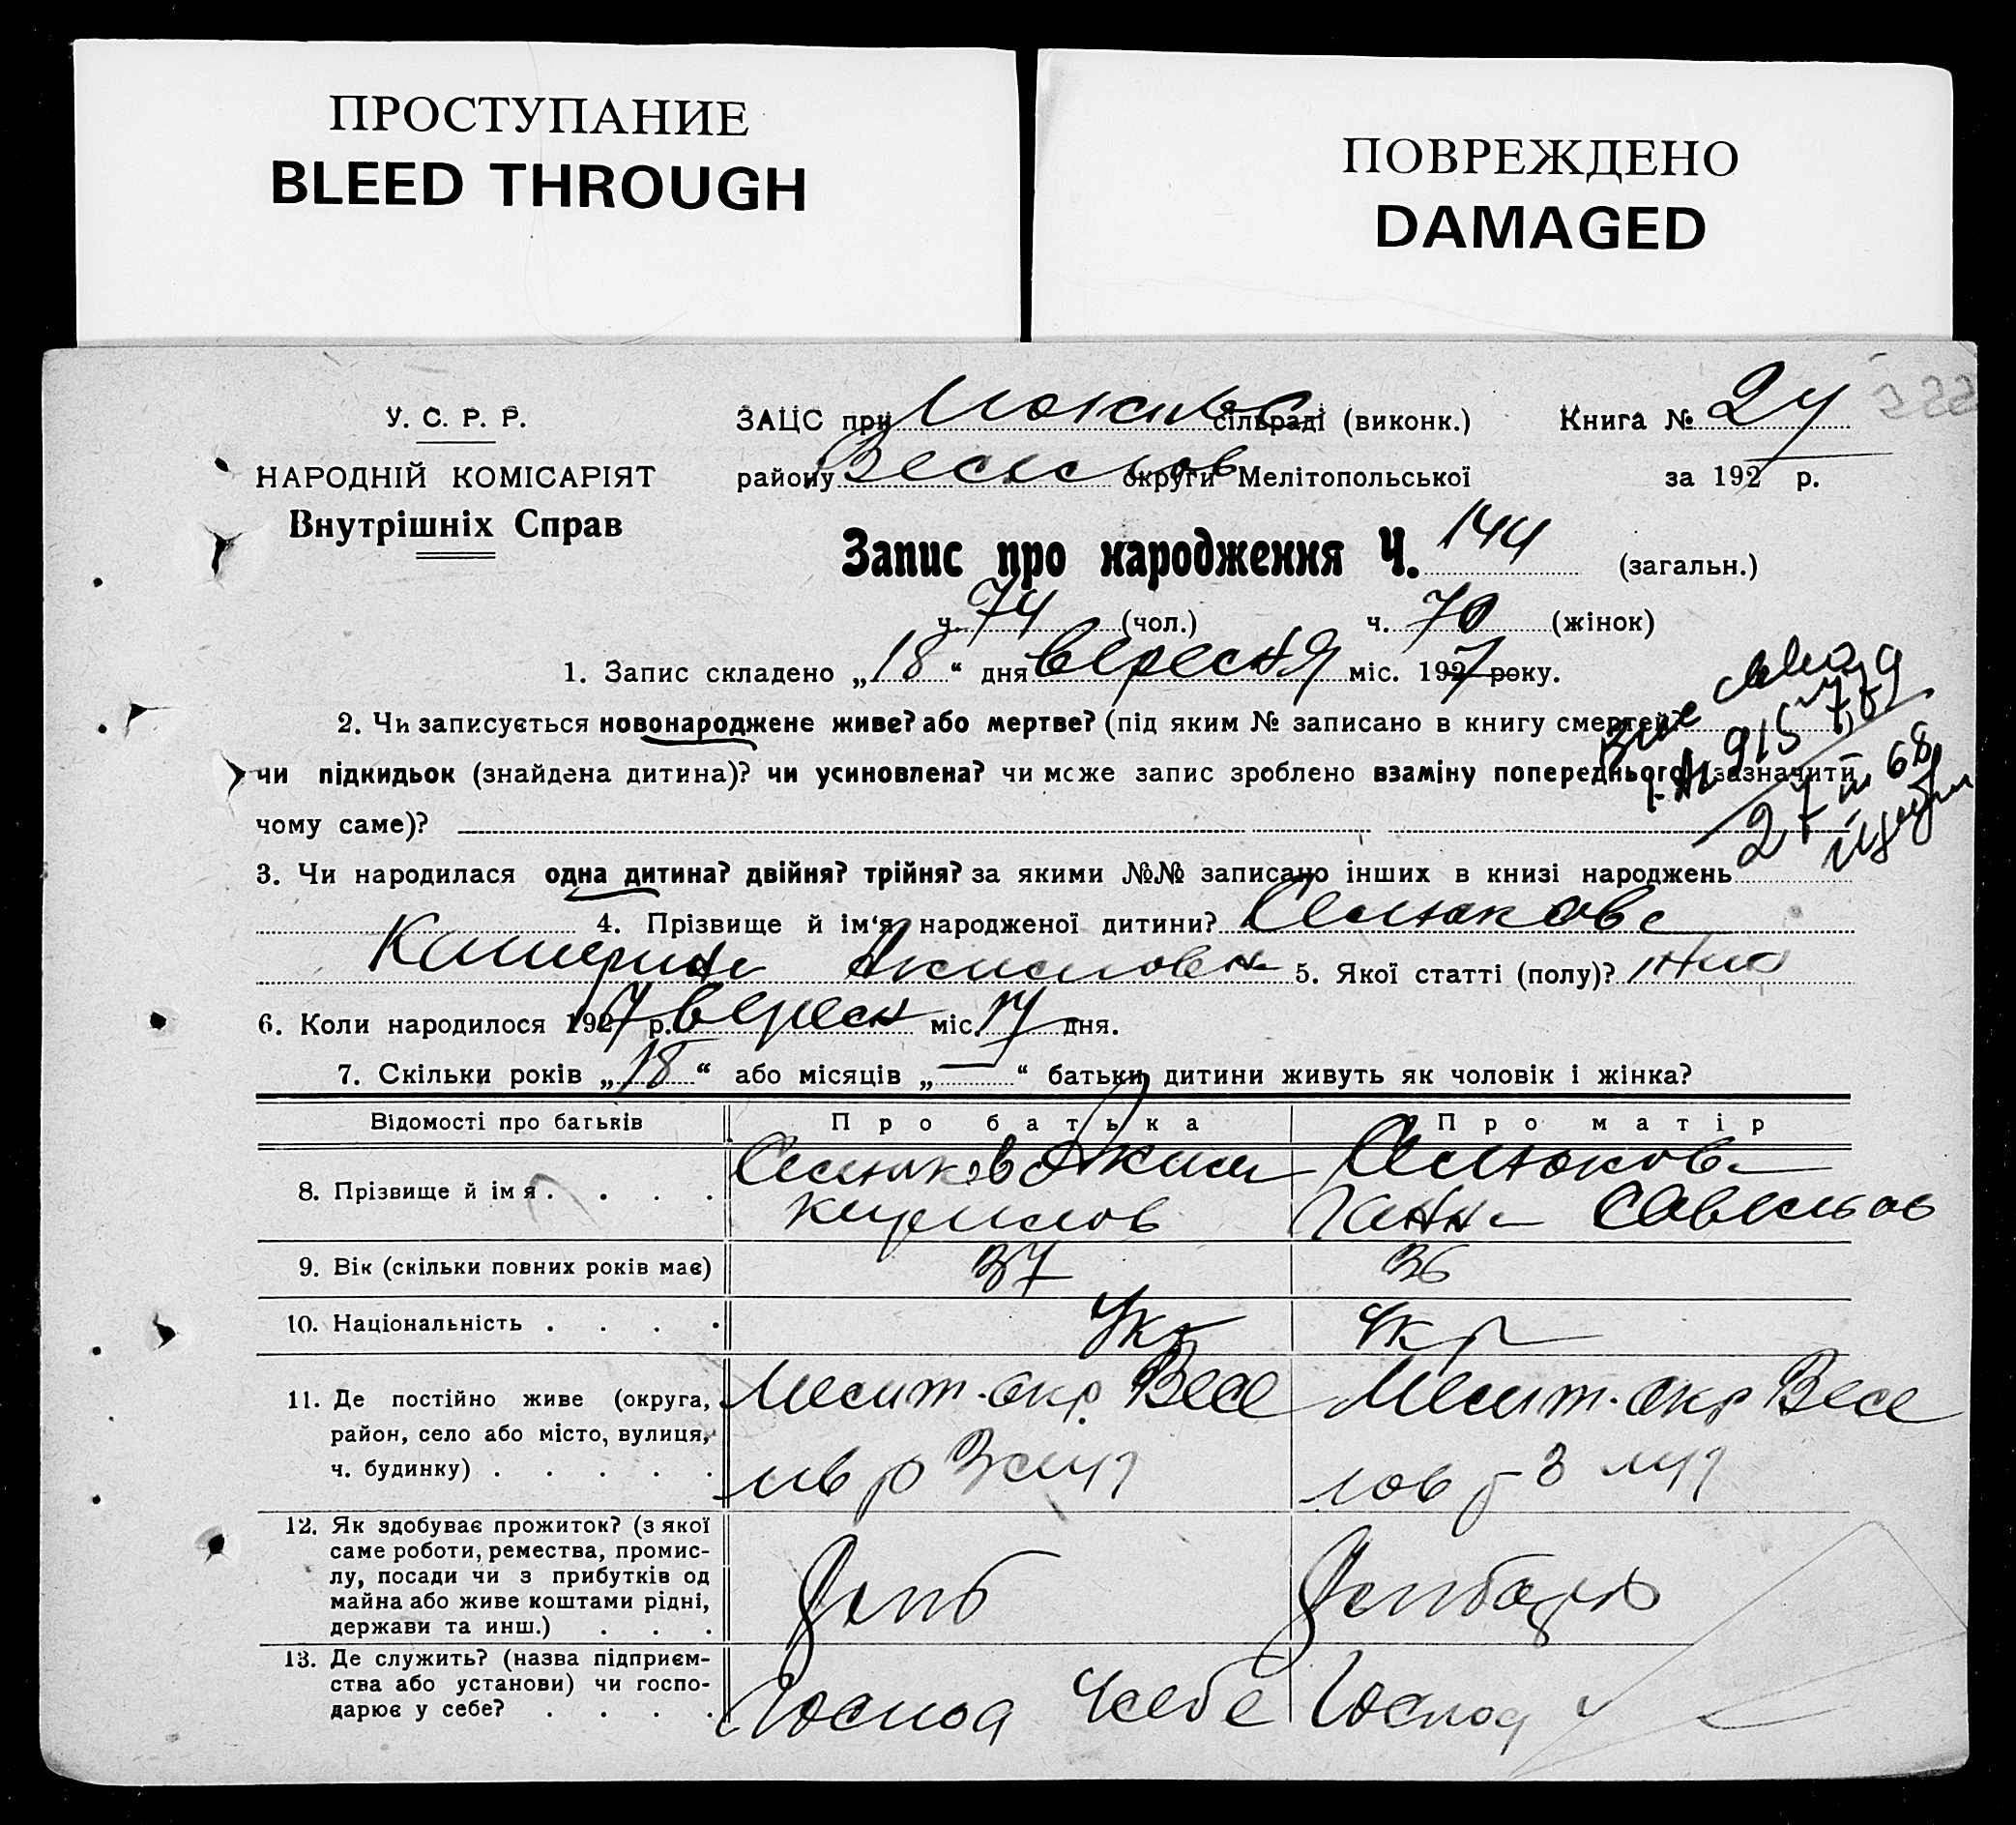 ПРОСТУПАНИЕ
BLEED THROUGH
ПОВРЕЖДЕНО
DAMAGED
У. С. Р. Р.
НАРОДНІЙ КОМІСАРІЯТ
Внутрішніх Справ
ЗАЦС при сільраді (виконк.) Книга № 24
району Веселов округи Мелітопольської за 192 р.
Запис про народження Ч. 144 (загальн.)
ч. 74 (чол.) ч. 70 (жінок)
1. Запис складено „18“ дня вересня міс. 1927 року.
2. Чи записується новонароджене живе? або мертве? (під яким № записано в книгу смертей?
чи підкидьок (знайдена дитина)? чи усиновлена? чи може запис зроблено взаміну попереднього, зазначити
чому саме)?
915
27 68
3. Чи народилася одна дитина? двійня? трійня? за якими №№ записано інших в книзі народжень
4. Прізвище й ім‘я народженої дитини? Семюкова
Катерина Акимовна 5. Якої статті (полу)? жіно
6. Коли народилося 1927 р. вересн міс. 17 дня.
7. Скільки років „18“ або місяців „—“ батьки дитини живуть як чоловік і жінка?
Відомості про батьків Про батька Про матір
8. Прізвище й ім я . . . . Семюков Аким Кирилов Семюкова Ганна Савельов
9. Вік (скільки повних років має) 37 36
10. Національність . . . . Укр Укр
11. Де постійно живе (округа, Мелит. окр. Весе Мелит. окр Весе
район, село або місто, вулиця, лов р
ч. будинку) . . . . . лов р
12. Як здобуває прожиток? (з якої
саме роботи, ремества, промис-
лу, посади чи з прибутків од
майна або живе коштами рідні, Хліб Хлібороб
держави та инш.) . . .
13. Де служить? (назва підприєм-
ства або установи) чи госпо-
дарює у себе? . . . . Господ Усебе Господ у